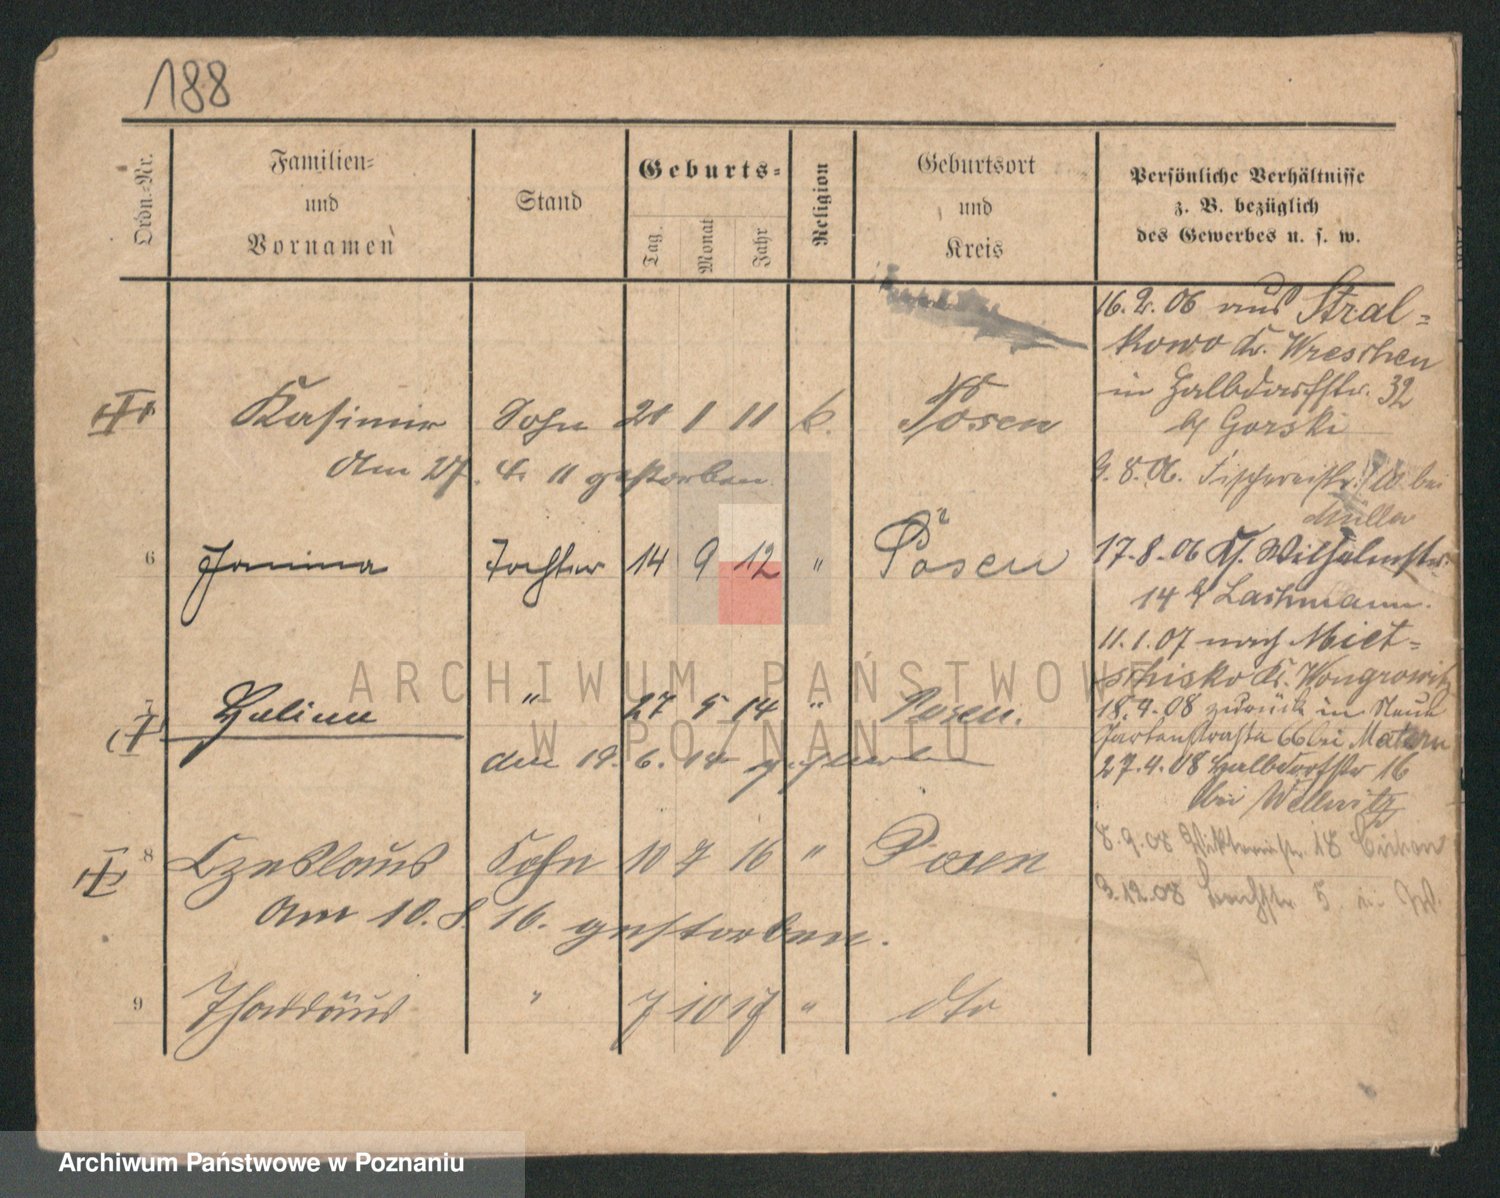 188
Ordn.-Nr.
Familien-
und
Vornamen
Stand
Geburts-
Tag.
Monat
Jahr
Religion
Geburtsort
und
Kreis
Persönliche Verhältnisse
z. B. bezüglich
des Gewerbes u. s. w.
16.2.06 aus Stral-
kowo Kr. Wreschen
in Halbdorfstr. 32
b/ Gorski
Kasimir Sohn 1 11 k. Posen
Am 27. 4. 11 gestorben.
9.8.06. Fischereistr. bei
Müller
6 Janina Tochter 14 9 12 " Posen
17.8.06 Kl. Wilhelmstr.
14 b/ Lachmann.
11.1.07 nach Miet-
schisko Kr. Wongrowitz
7 Halina " 27 5 14 " Posen.
18.4.08 zurück in Neue
Gartenstraße 66 bei Matern
den 19. 6. 14 gestorben
27.4.08 Halbdorfstr 16
bei Wellnitz
8 Czeslaus Sohn 10 7 16 " Posen
8.9.08 18
Am 10. 8. 16. gestorben.
3.12.08 5.
9 Thaddäus " 7 10 17 " dto
ARCHIWUM PAŃSTWOWE
W POZNANIU
Archiwum Państwowe w Poznaniu